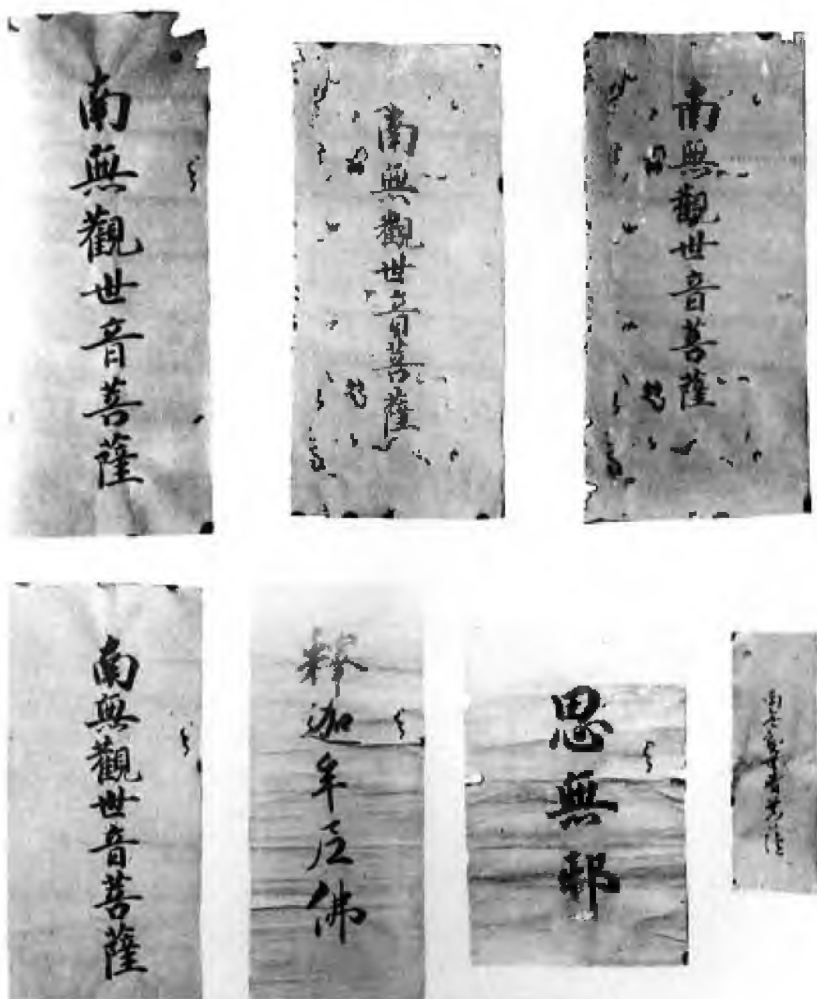 南無觀世音菩薩
南無觀世音菩薩
南無觀世音菩薩
南無觀世音菩薩
釋迦牟尼佛
思無邪
南無觀世音菩薩